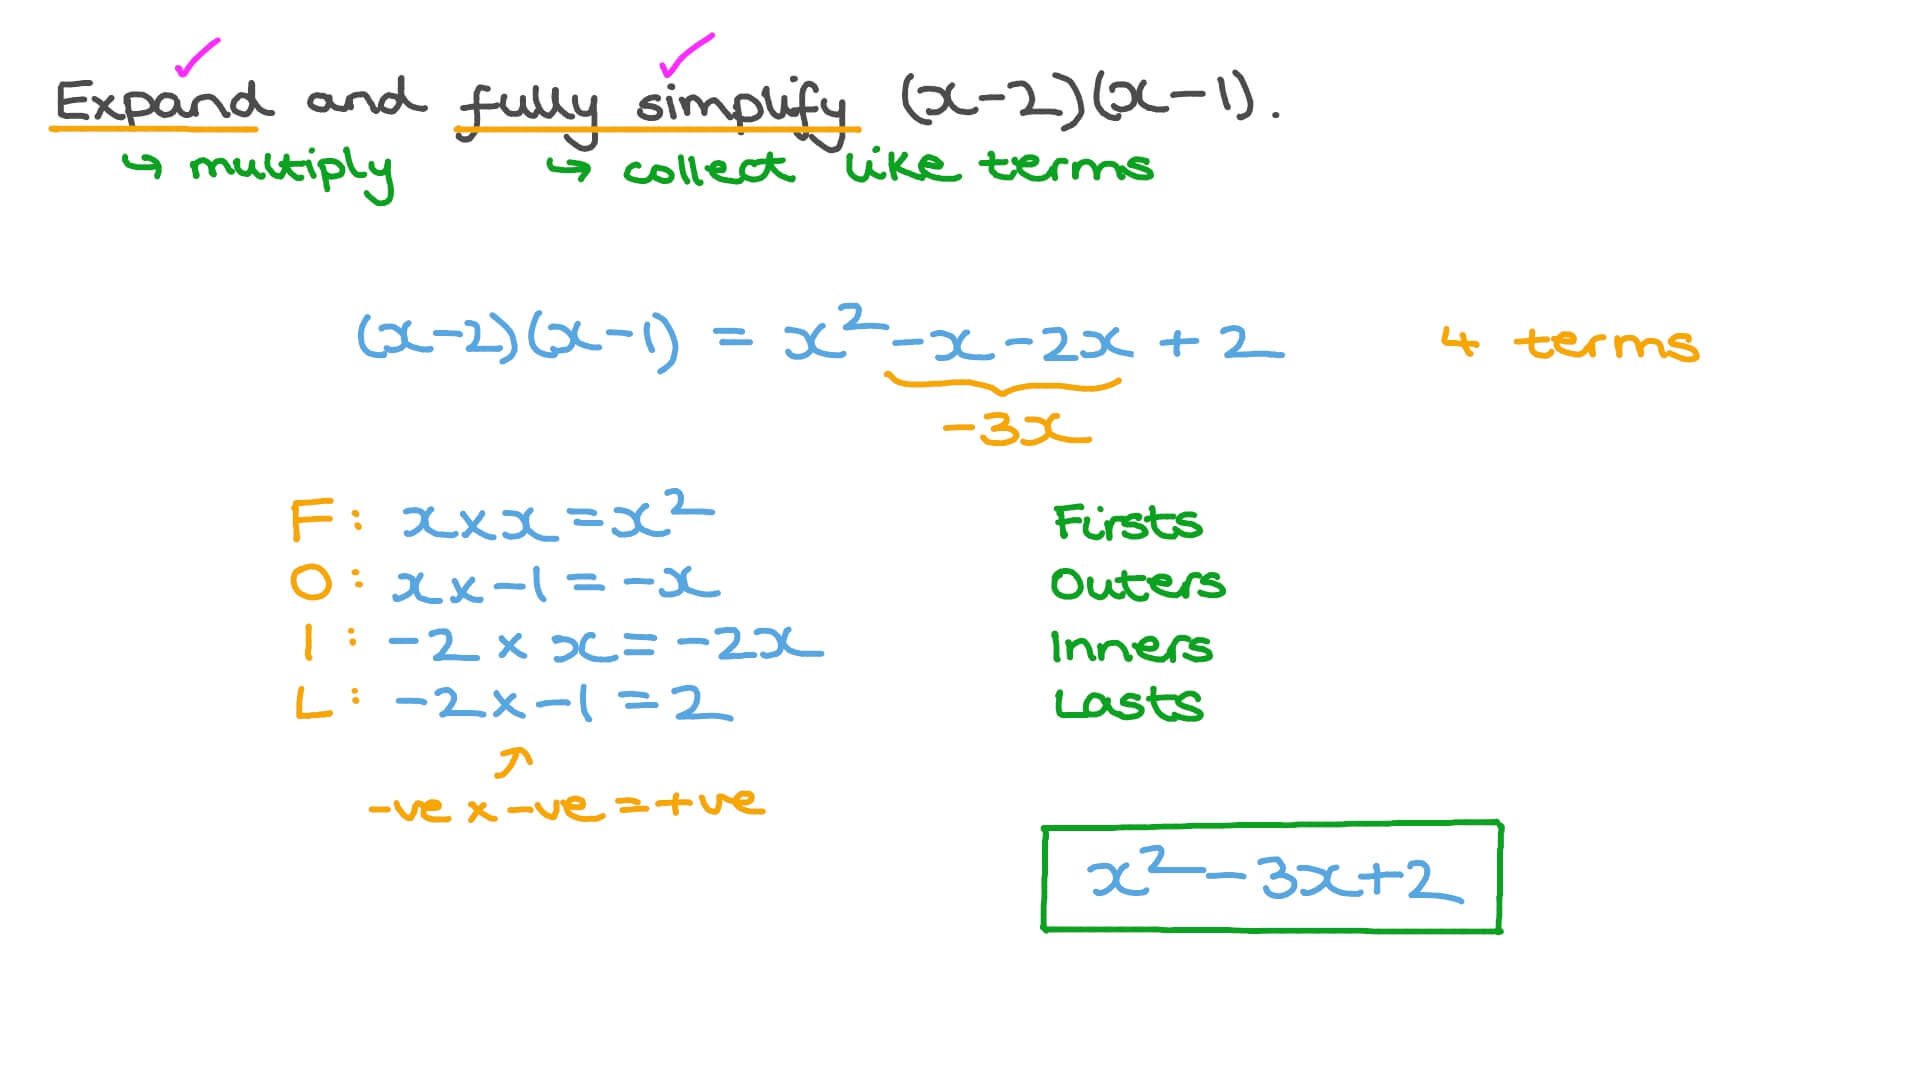 Expand and fully simplify (x-2)(x-1).
↳ multiply ↳ collect like terms
(x-2)(x-1) = x² - x - 2x + 2 4 terms
-3x
F: x × x = x² Firsts
O: x × -1 = -x Outers
I: -2 × x = -2x Inners
L: -2 × -1 = 2 Lasts
-ve × -ve = +ve
x² - 3x + 2